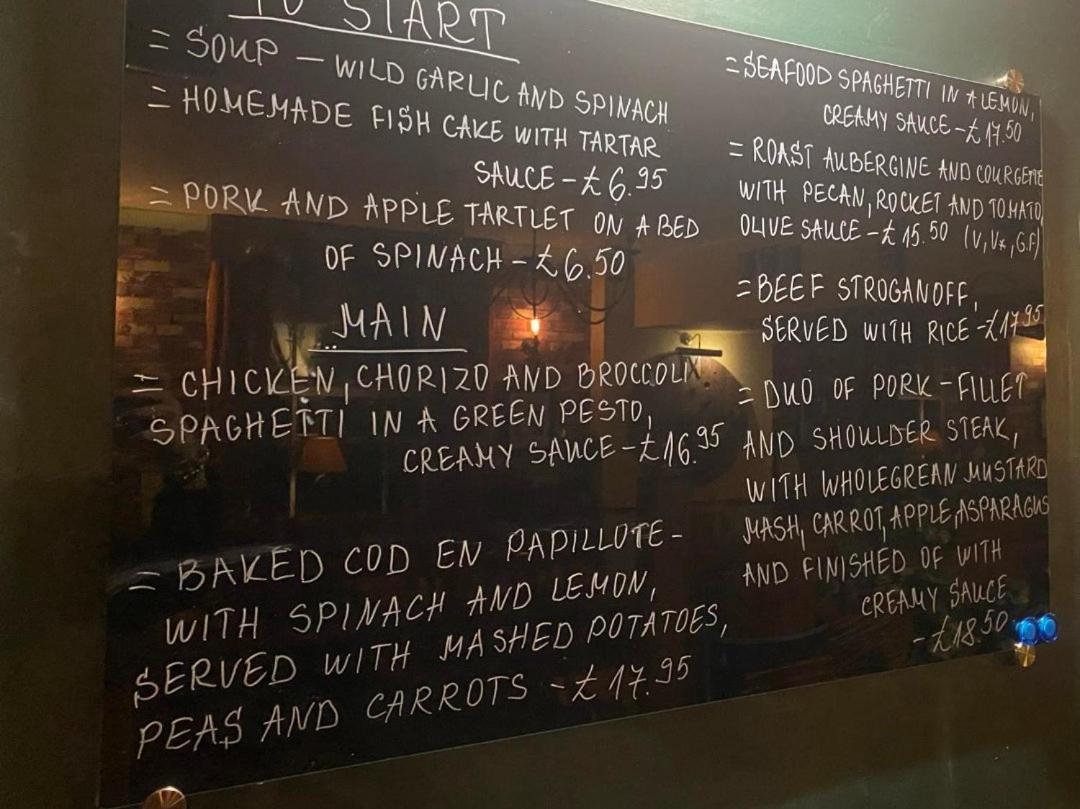 TO START
= SOUP - WILD GARLIC AND SPINACH
= HOMEMADE FISH CAKE WITH TARTAR
SAUCE - £6.95
= PORK AND APPLE TARTLET ON A BED
OF SPINACH - £6.50
MAIN
= CHICKEN, CHORIZO AND BROCCOLI
SPAGHETTI IN A GREEN PESTO,
CREAMY SAUCE - £16.95
= BAKED COD EN PAPILLOTE -
WITH SPINACH AND LEMON,
SERVED WITH MASHED POTATOES,
PEAS AND CARROTS - £17.95
= SEAFOOD SPAGHETTI IN A LEMON,
CREAMY SAUCE - £17.50
= ROAST AUBERGINE AND COURGETTE
WITH PECAN, ROCKET AND TOMATO,
OLIVE SAUCE - £15.50 (V, V*, G.F)
= BEEF STROGANOFF,
SERVED WITH RICE - £17.95
= DUO OF PORK - FILLET
AND SHOULDER STEAK,
WITH WHOLEGREAN MUSTARD
MASH, CARROT, APPLE, ASPARAGUS
AND FINISHED OF WITH
CREAMY SAUCE
- £18.50